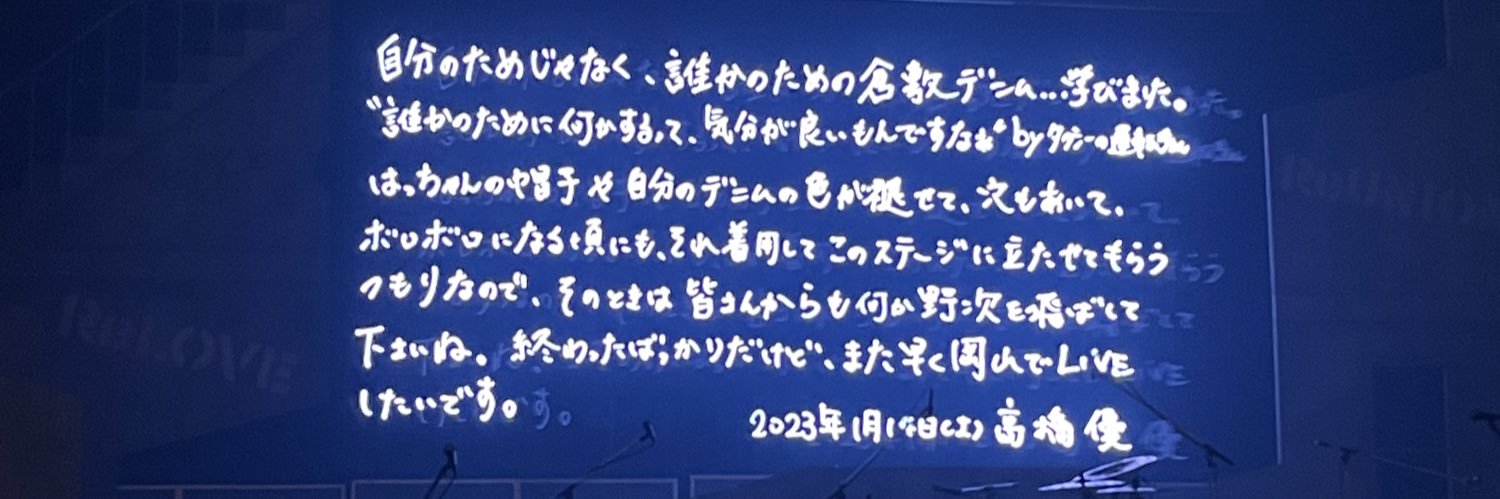 自分のためじゃなく、誰かのための倉敷デニム…学びました。
"誰かのために何かするって、気分が良いもんですなぁ" by タクシーの運転手さん
はっちゃんの帽子や自分のデニムの色が褪せて、穴もあいて、
ボロボロになる頃にも、それ着用してこのステージに立たせてもらう
つもりなので、そのときは皆さんからも何か野次を飛ばして
下さいね。終わったばっかりだけど、また早く岡山でLIVE
したいです。
2023年1月14日(土) 高橋優